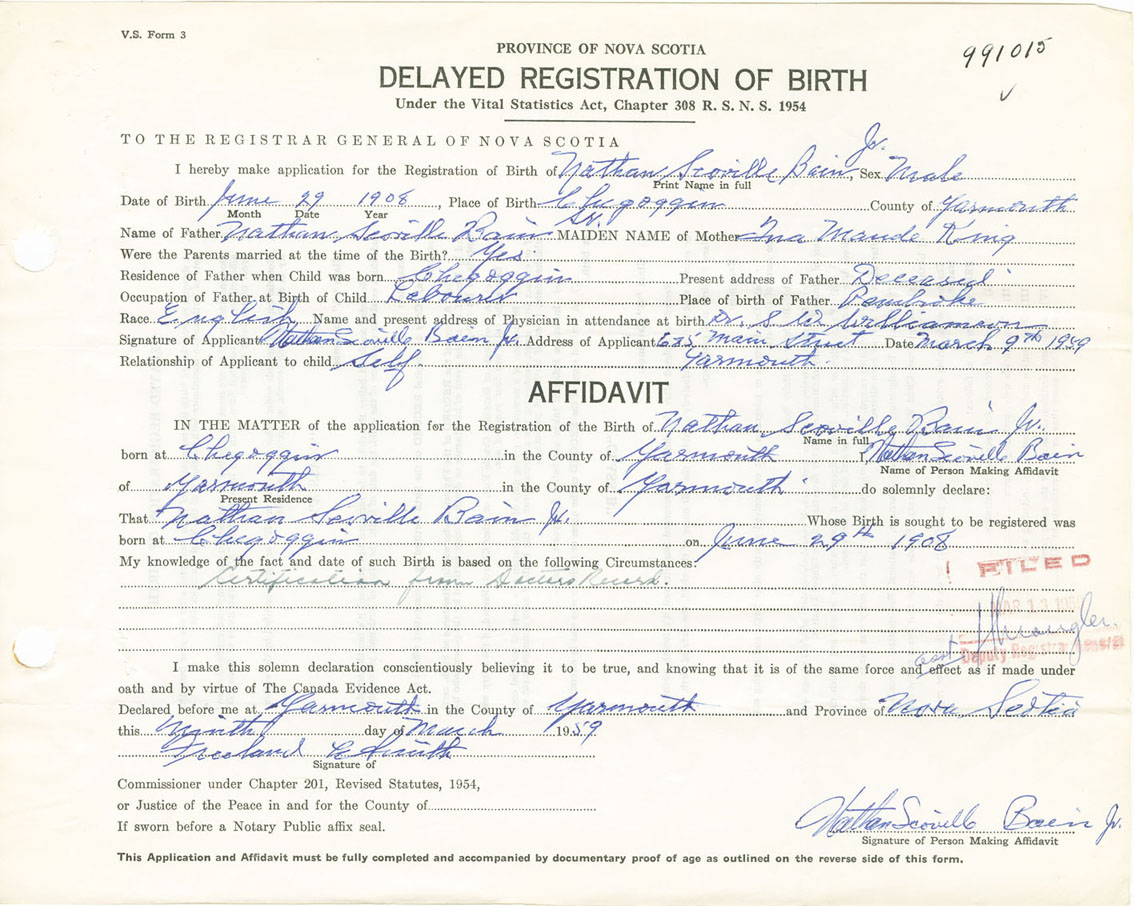 V.S. Form 3
PROVINCE OF NOVA SCOTIA
991015
DELAYED REGISTRATION OF BIRTH
Under the Vital Statistics Act, Chapter 308 R. S. N. S. 1954
TO THE REGISTRAR GENERAL OF NOVA SCOTIA
I hereby make application for the Registration of Birth of Nathan Scoville Bain Jr., Sex Male
Print Name in full
Date of Birth June 29 1908, Place of Birth Chegoggin County of Yarmouth
Month Date Year
Name of Father Nathan Scoville Bain Sr. MAIDEN NAME of Mother Ina Maude King
Were the Parents married at the time of the Birth? Yes
Residence of Father when Child was born Chegoggin Present address of Father Deceased
Occupation of Father at Birth of Child Labourer Place of birth of Father Pembroke
Race English Name and present address of Physician in attendance at birth Dr. S W Williamson
Signature of Applicant Nathan Scoville Bain Jr. Address of Applicant Main Street Date March 9th 1959
Relationship of Applicant to child Self. Yarmouth.
AFFIDAVIT
IN THE MATTER of the application for the Registration of the Birth of Nathan Scoville Bain Jr.
Name in full
born at Chegoggin in the County of Yarmouth I, Nathan Scoville Bain
Name of Person Making Affidavit
of Yarmouth in the County of Yarmouth do solemnly declare:
Present Residence
That Nathan Scoville Bain Jr. Whose Birth is sought to be registered was
born at Chegoggin on June 29th 1908
My knowledge of the fact and date of such Birth is based on the following Circumstances:
Certification from Doctors Record.
FILED
Deputy Registrar General
I make this solemn declaration conscientiously believing it to be true, and knowing that it is of the same force and effect as if made under
oath and by virtue of The Canada Evidence Act.
Declared before me at Yarmouth in the County of Yarmouth and Province of Nova Scotia
this Ninth day of March 1959
Freeland C Smith
Signature of
Commissioner under Chapter 201, Revised Statutes, 1954,
or Justice of the Peace in and for the County of
If sworn before a Notary Public affix seal.
Nathan Scoville Bain Jr.
Signature of Person Making Affidavit
This Application and Affidavit must be fully completed and accompanied by documentary proof of age as outlined on the reverse side of this form.